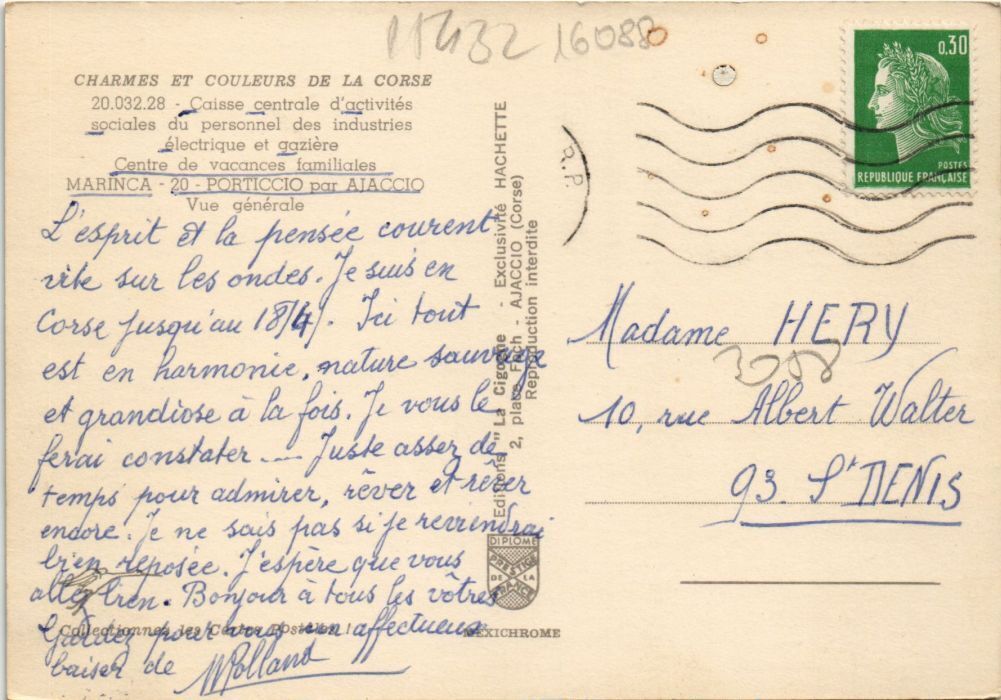 11432 16088
CHARMES ET COULEURS DE LA CORSE
20.032.28 - Caisse centrale d'activités
sociales du personnel des industries
électrique et gazière
Centre de vacances familiales
MARINCA - 20 - PORTICCIO par AJACCIO
Vue générale
L'esprit et la pensée courent
vite sur les ondes. Je suis en
Corse jusqu'au 18/4/. Ici tout
est en harmonie, nature sauvage
et grandiose à la fois. Je vous le
ferai constater ---- Juste assez de
temps pour admirer, rêver et rêver
encore. Je ne sais pas si je reviendrai
bien reposée. J'espère que vous
allez bien. Bonjour à tous les vôtres
Gardez pour vous un affectueux
baiser de Rolland
Collectionnez les Cartes Postales !
Editions "La Cigogne" - Exclusivité HACHETTE
2, place Foch - AJACCIO (Corse)
Reproduction interdite
DIPLOME
PRESTIGE
DE LA
FRANCE
MEXICHROME
R.P.
0,30
POSTES
REPUBLIQUE FRANÇAISE
Madame HERY
3088
10, rue Albert Walter
93. St DENIS